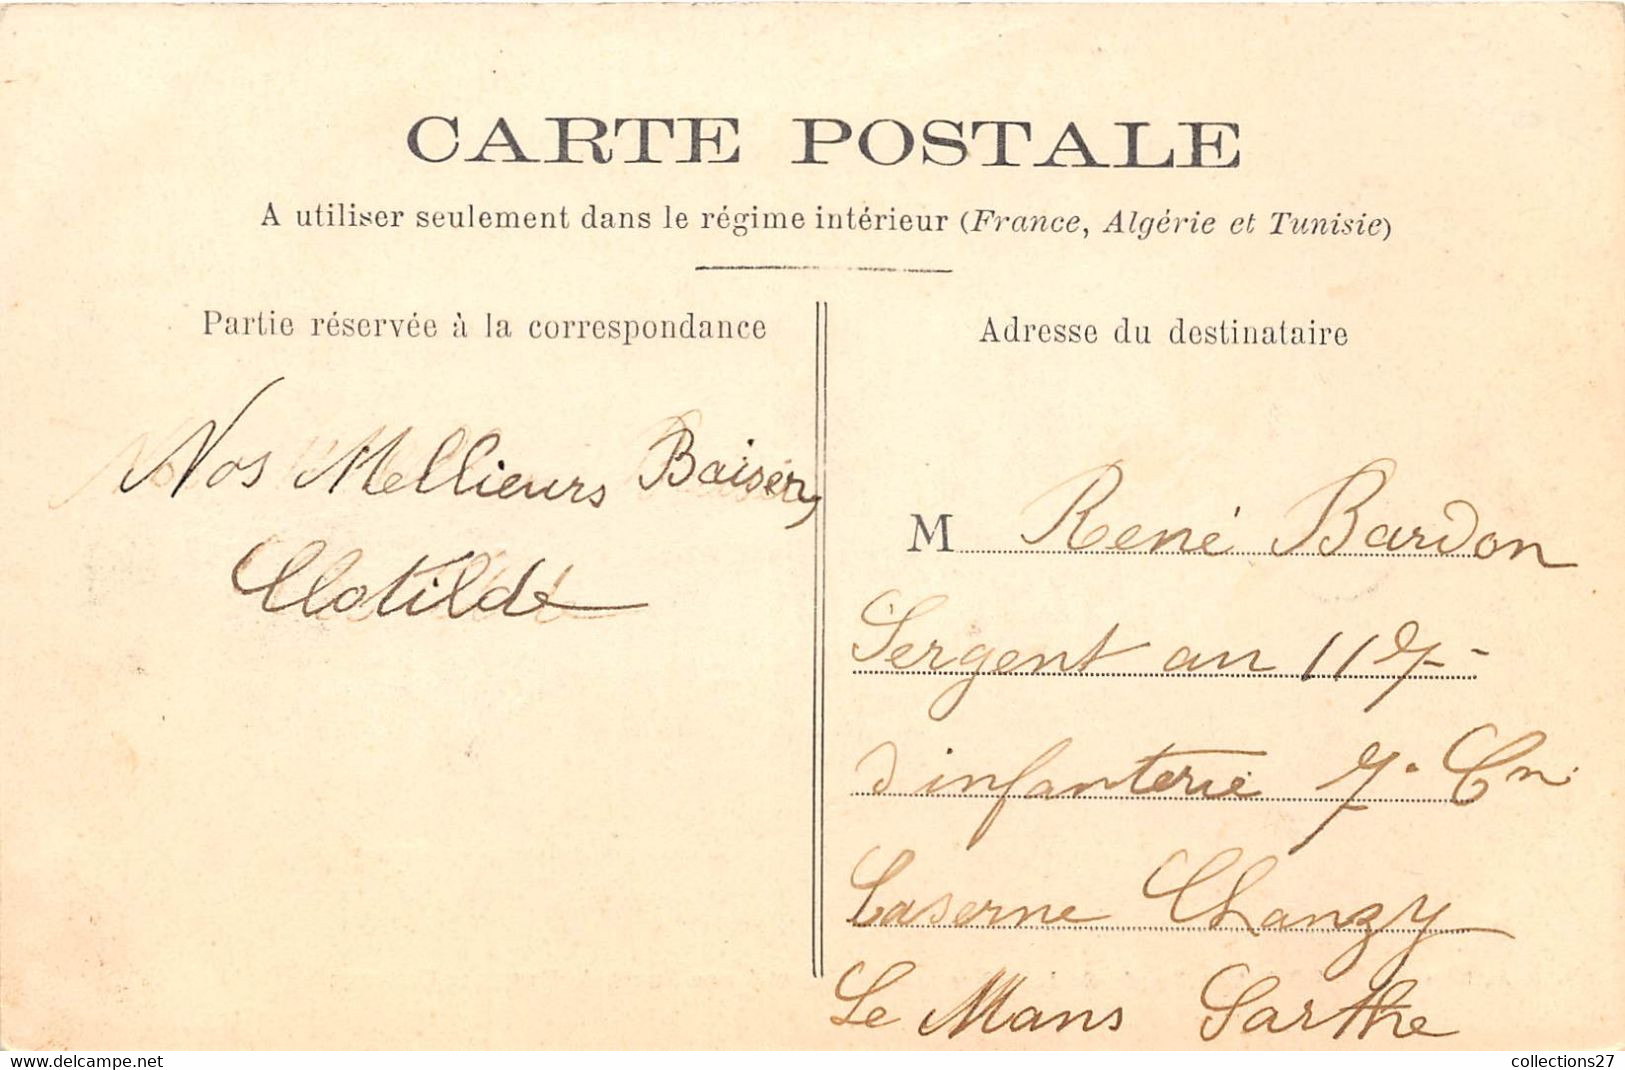 CARTE POSTALE
A utiliser seulement dans le régime intérieur (France, Algérie et Tunisie)
Partie réservée à la correspondance
Nos Mellieurs Baisers
Clotilde
Adresse du destinataire
M René Bardon
Sergent au 117-
d'infanterie 7. Cn
Caserne Chanzy
Le Mans Sarthe
https://www.delcampe.net
collections27